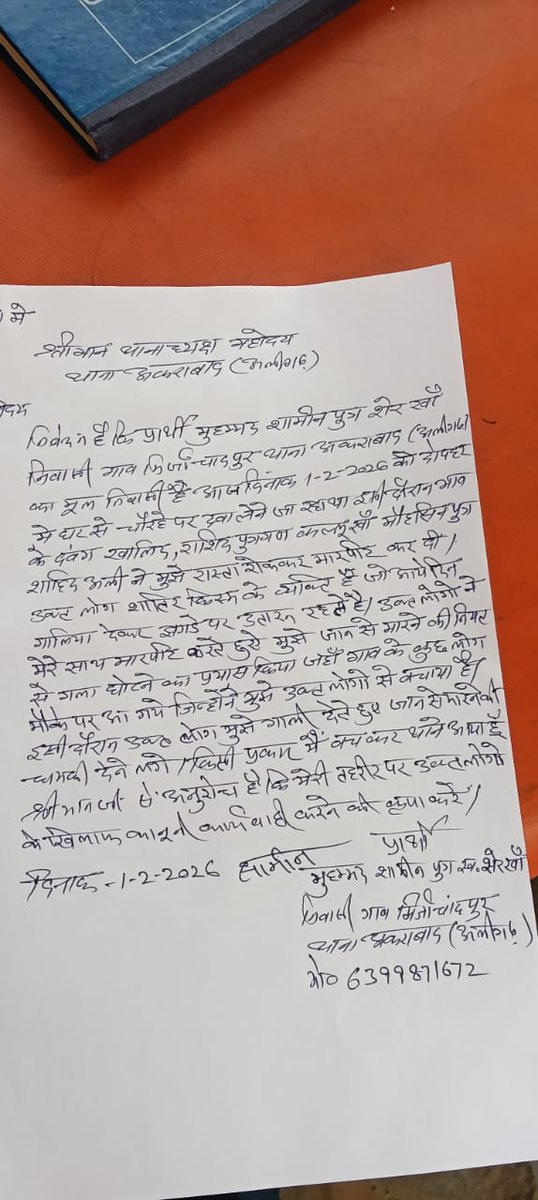 में
श्रीमान थानाध्यक्ष महोदय
थाना अकराबाद (अलीगढ़)
महोदय
निवेदन है कि प्रार्थी मुहम्मद शामीन पुत्र शेर खाँ
निवासी गाव मिर्जाचांदपुर थाना अकराबाद (अलीगढ़)
का मूल निवासी है आज दिनांक 1-2-2026 को दोपहर
मे घर से चौराहे पर दवा लेने जा रहा था इसी दौरान गाव
के दबंग खालिद, राशिद पुत्रगण कल्लू खाँ मौहसिन पुत्र
शाहिद अली ने मुझे रास्ता रोककर मारपीट कर दी।
उक्त लोग शातिर किस्म के व्यक्ति है जो आये दिन
गालिया देकर झगडे पर उतारू रहते है। उक्त लोगो ने
मेरे साथ मारपीट करते हुऐ मुझे जान से मारने की नियत
से गला घोटने का प्रयास किया जहाँ गाव के कुछ लोग
मौके पर आ गये जिन्होंने मुझे उक्त लोगो से बचाया है।
इसी दौरान उक्त लोग मुझे गाली देते हुए जान से मारने की
धमकी देने लगे। किसी प्रकार मैं बचकर थाने आया हूँ
श्रीमान जी से अनुरोध है कि मेरी तहरीर पर उक्त लोगो
के खिलाफ कानूनी कार्यवाही करने की कृपा करें।
प्रार्थी
दिनांक -1-2-2026 शामीन मुहम्मद शामीन पुत्र स्व. शेरखाँ
निवासी गाव मिर्जाचांदपुर
थाना अकराबाद (अलीगढ़)
मो० 6399871672